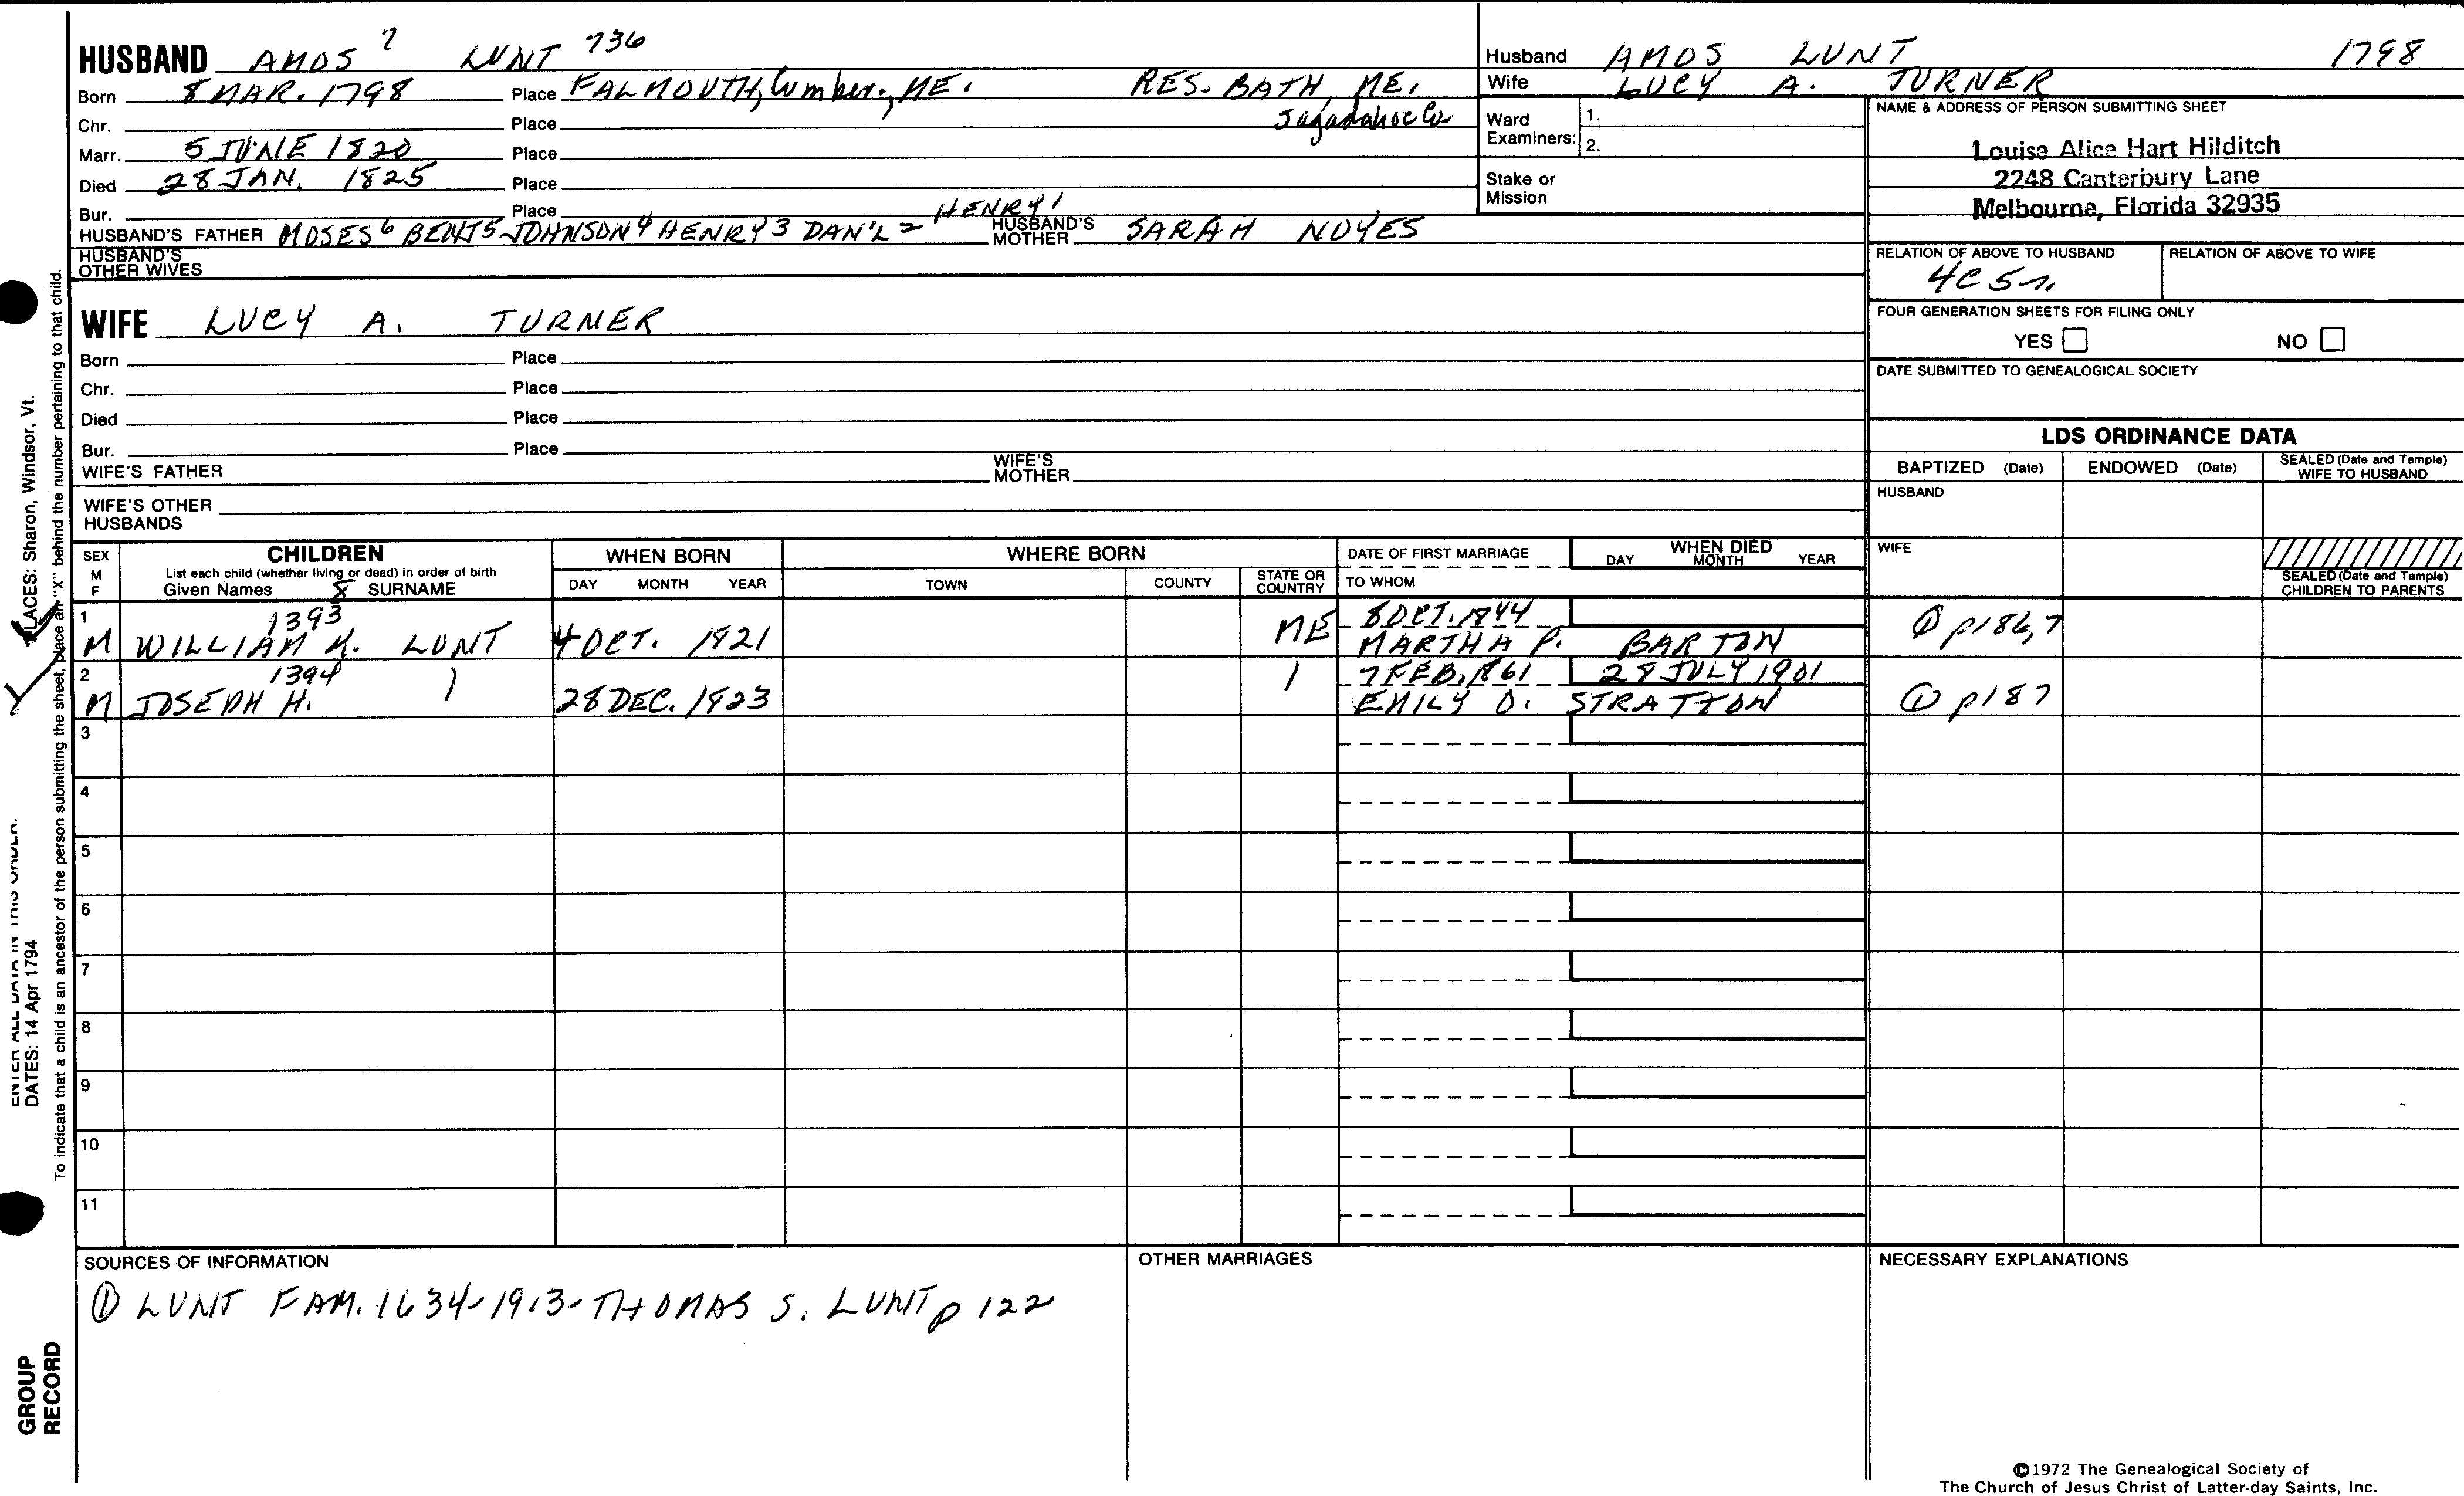 HUSBAND AMOS 7 LUNT 736
Born 8 MAR. 1798 Place FALMOUTH, Cumber., ME. RES. BATH, ME.
Chr. Place Sagadahoc Co
Marr. 5 JUNE 1820 Place
Died 28 JAN. 1825 Place
Bur. Place
HUSBAND'S FATHER MOSES 6 BENJ 5 JOHNSON 4 HENRY 3 DAN'L 2 HENRY 1 HUSBAND'S MOTHER SARAH NOYES
HUSBAND'S OTHER WIVES
Husband AMOS LUNT 1798
Wife LUCY A. TURNER
Ward Examiners: 1.
2.
Stake or Mission
NAME & ADDRESS OF PERSON SUBMITTING SHEET
Louise Alice Hart Hilditch
2248 Canterbury Lane
Melbourne, Florida 32935
RELATION OF ABOVE TO HUSBAND RELATION OF ABOVE TO WIFE
4C 5r.
FOUR GENERATION SHEETS FOR FILING ONLY
YES NO
DATE SUBMITTED TO GENEALOGICAL SOCIETY
WIFE LUCY A. TURNER
Born Place
Chr. Place
Died Place
Bur. Place
WIFE'S FATHER WIFE'S MOTHER
WIFE'S OTHER HUSBANDS
LDS ORDINANCE DATA
BAPTIZED (Date) ENDOWED (Date) SEALED (Date and Temple) WIFE TO HUSBAND
HUSBAND
WIFE
SEALED (Date and Temple) CHILDREN TO PARENTS
SEX M F CHILDREN WHEN BORN WHERE BORN DATE OF FIRST MARRIAGE WHEN DIED
List each child (whether living or dead) in order of birth
Given Names 8 SURNAME DAY MONTH YEAR TOWN COUNTY STATE OR COUNTRY TO WHOM DAY MONTH YEAR
1 1393 8 OCT. 1844
M WILLIAM K. LUNT 4 OCT. 1821 ME MARTHA P. BARTON ① p186,7
2 1394 7 FEB, 1861 28 JULY 1901
M JOSEPH H. 28 DEC. 1823 EMILY O. STRATTON ① p187
3
4
5
6
7
8
9
10
11
SOURCES OF INFORMATION
① LUNT FAM. 1634-1913-THOMAS S. LUNT p 122
OTHER MARRIAGES
NECESSARY EXPLANATIONS
©1972 The Genealogical Society of
The Church of Jesus Christ of Latter-day Saints, Inc.
ENTER ALL DATA IN THIS ORDER.
DATES: 14 Apr 1794
PLACES: Sharon, Windsor, Vt.
To indicate that a child is an ancestor of the person submitting the sheet, place an "X" behind the number pertaining to that child.
GROUP
RECORD